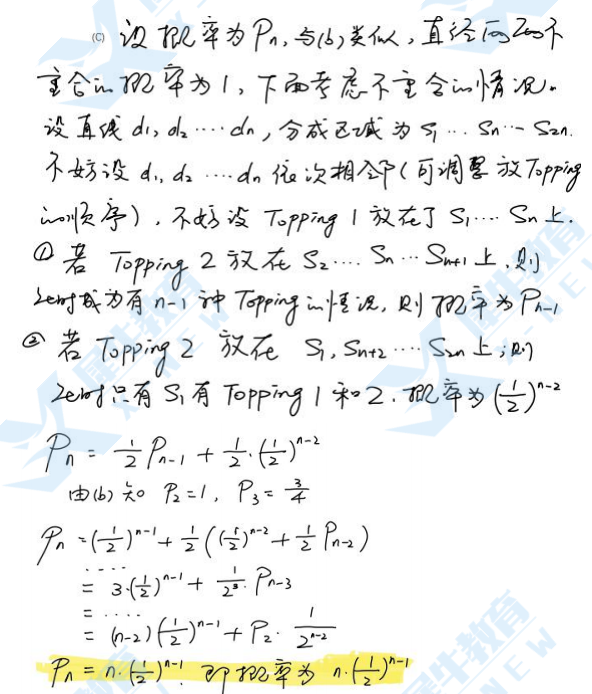 (C) 设概率为Pn,与(b)类似,直径两两不
重合的概率为1,下面考虑不重合的情况。
设直线d₁,d₂····dn,分成区域为S₁···Sn···S₂n.
不妨设d₁,d₂····dn依次相邻(可调整放Topping
的顺序),不妨设Topping 1放在了S₁····Sn上.
① 若Topping 2放在S₂····Sn···Sn+1上,则
此时成为有n-1种Topping的情况,则概率为Pn-1
② 若Topping 2 放在 S₁,Sn+2····S₂n上,则
此时只有S₁有Topping 1和2.概率为(1/2)^(n-2)
Pn = 1/2 Pn-1 + 1/2·(1/2)^(n-2)
由(b)知 P₂=1, P₃=3/4
Pn =(1/2)^(n-1)+1/2((1/2)^(n-2)+1/2 Pn-2)
····
= 3·(1/2)^(n-1)+ 1/2³·Pn-3
= ····
= (n-2)(1/2)^(n-1)+P₂·1/2^(n-2)
Pn = n·(1/2)^(n-1). 即概率为 n·(1/2)^(n-1)
犀牛教育
X-NEW